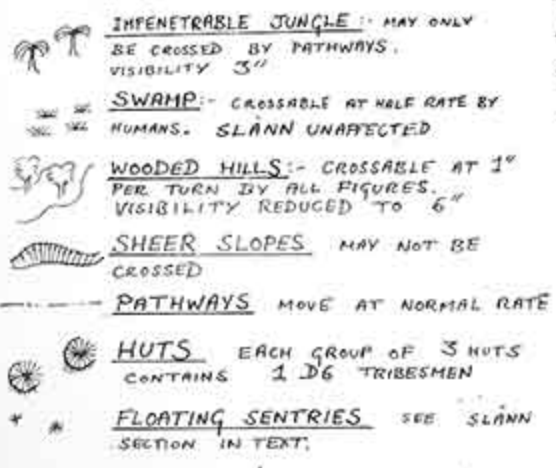 IMPENETRABLE JUNGLE :- MAY ONLY
BE CROSSED BY PATHWAYS.
VISIBILITY 3"
SWAMP:- CROSSABLE AT HALF RATE BY
HUMANS. SLANN UNAFFECTED
WOODED HILLS:- CROSSABLE AT 1"
PER TURN BY ALL FIGURES.
VISIBILITY REDUCED TO 6"
SHEER SLOPES MAY NOT BE
CROSSED
PATHWAYS MOVE AT NORMAL RATE
HUTS EACH GROUP OF 3 HUTS
CONTAINS 1 D6 TRIBESMEN
FLOATING SENTRIES SEE SLANN
SECTION IN TEXT.